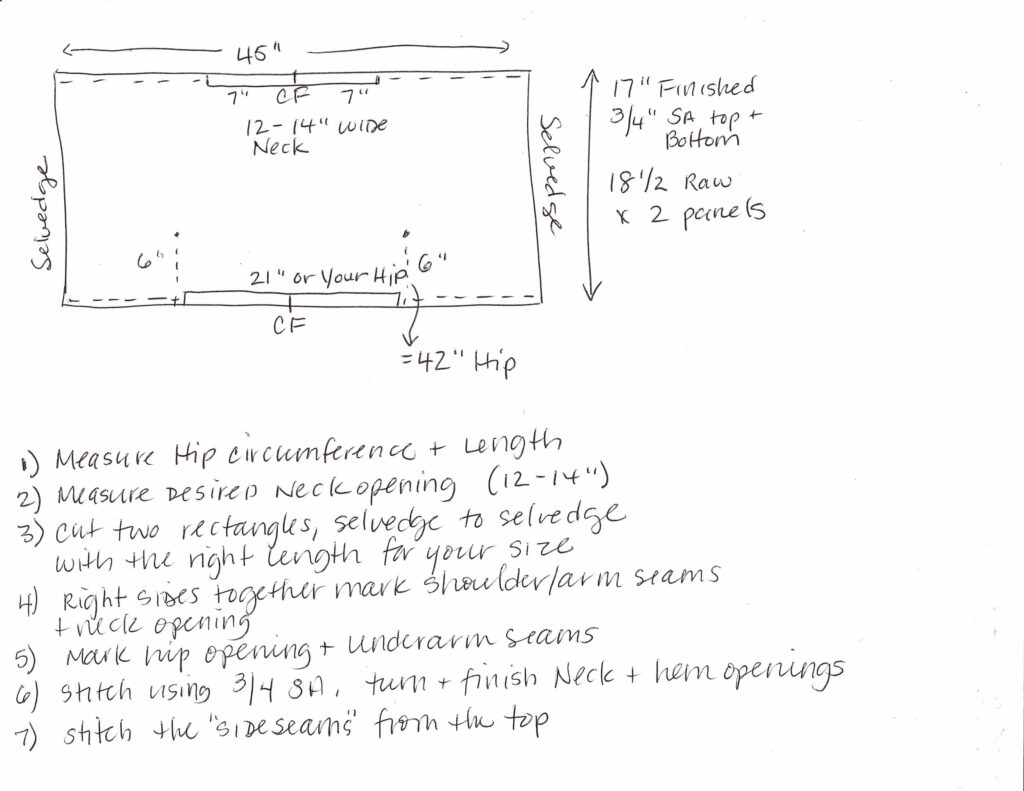 45"
7" CF 7"
12-14" WIDE
Neck
Selvedge
Selvedge
17" Finished
3/4" SA top +
Bottom
18 1/2 Raw
x 2 panels
6"
21" or Your Hip
6"
CF
=42" Hip
1) Measure Hip circumference + Length
2) Measure Desired Neck opening (12-14")
3) Cut two rectangles, selvedge to selvedge
with the right length for your size
4) Right sides together mark shoulder/arm seams
+ neck opening
5) Mark hip opening + underarm seams
6) Stitch using 3/4 SA, turn + finish Neck + hem openings
7) stitch the "side seams" from the top